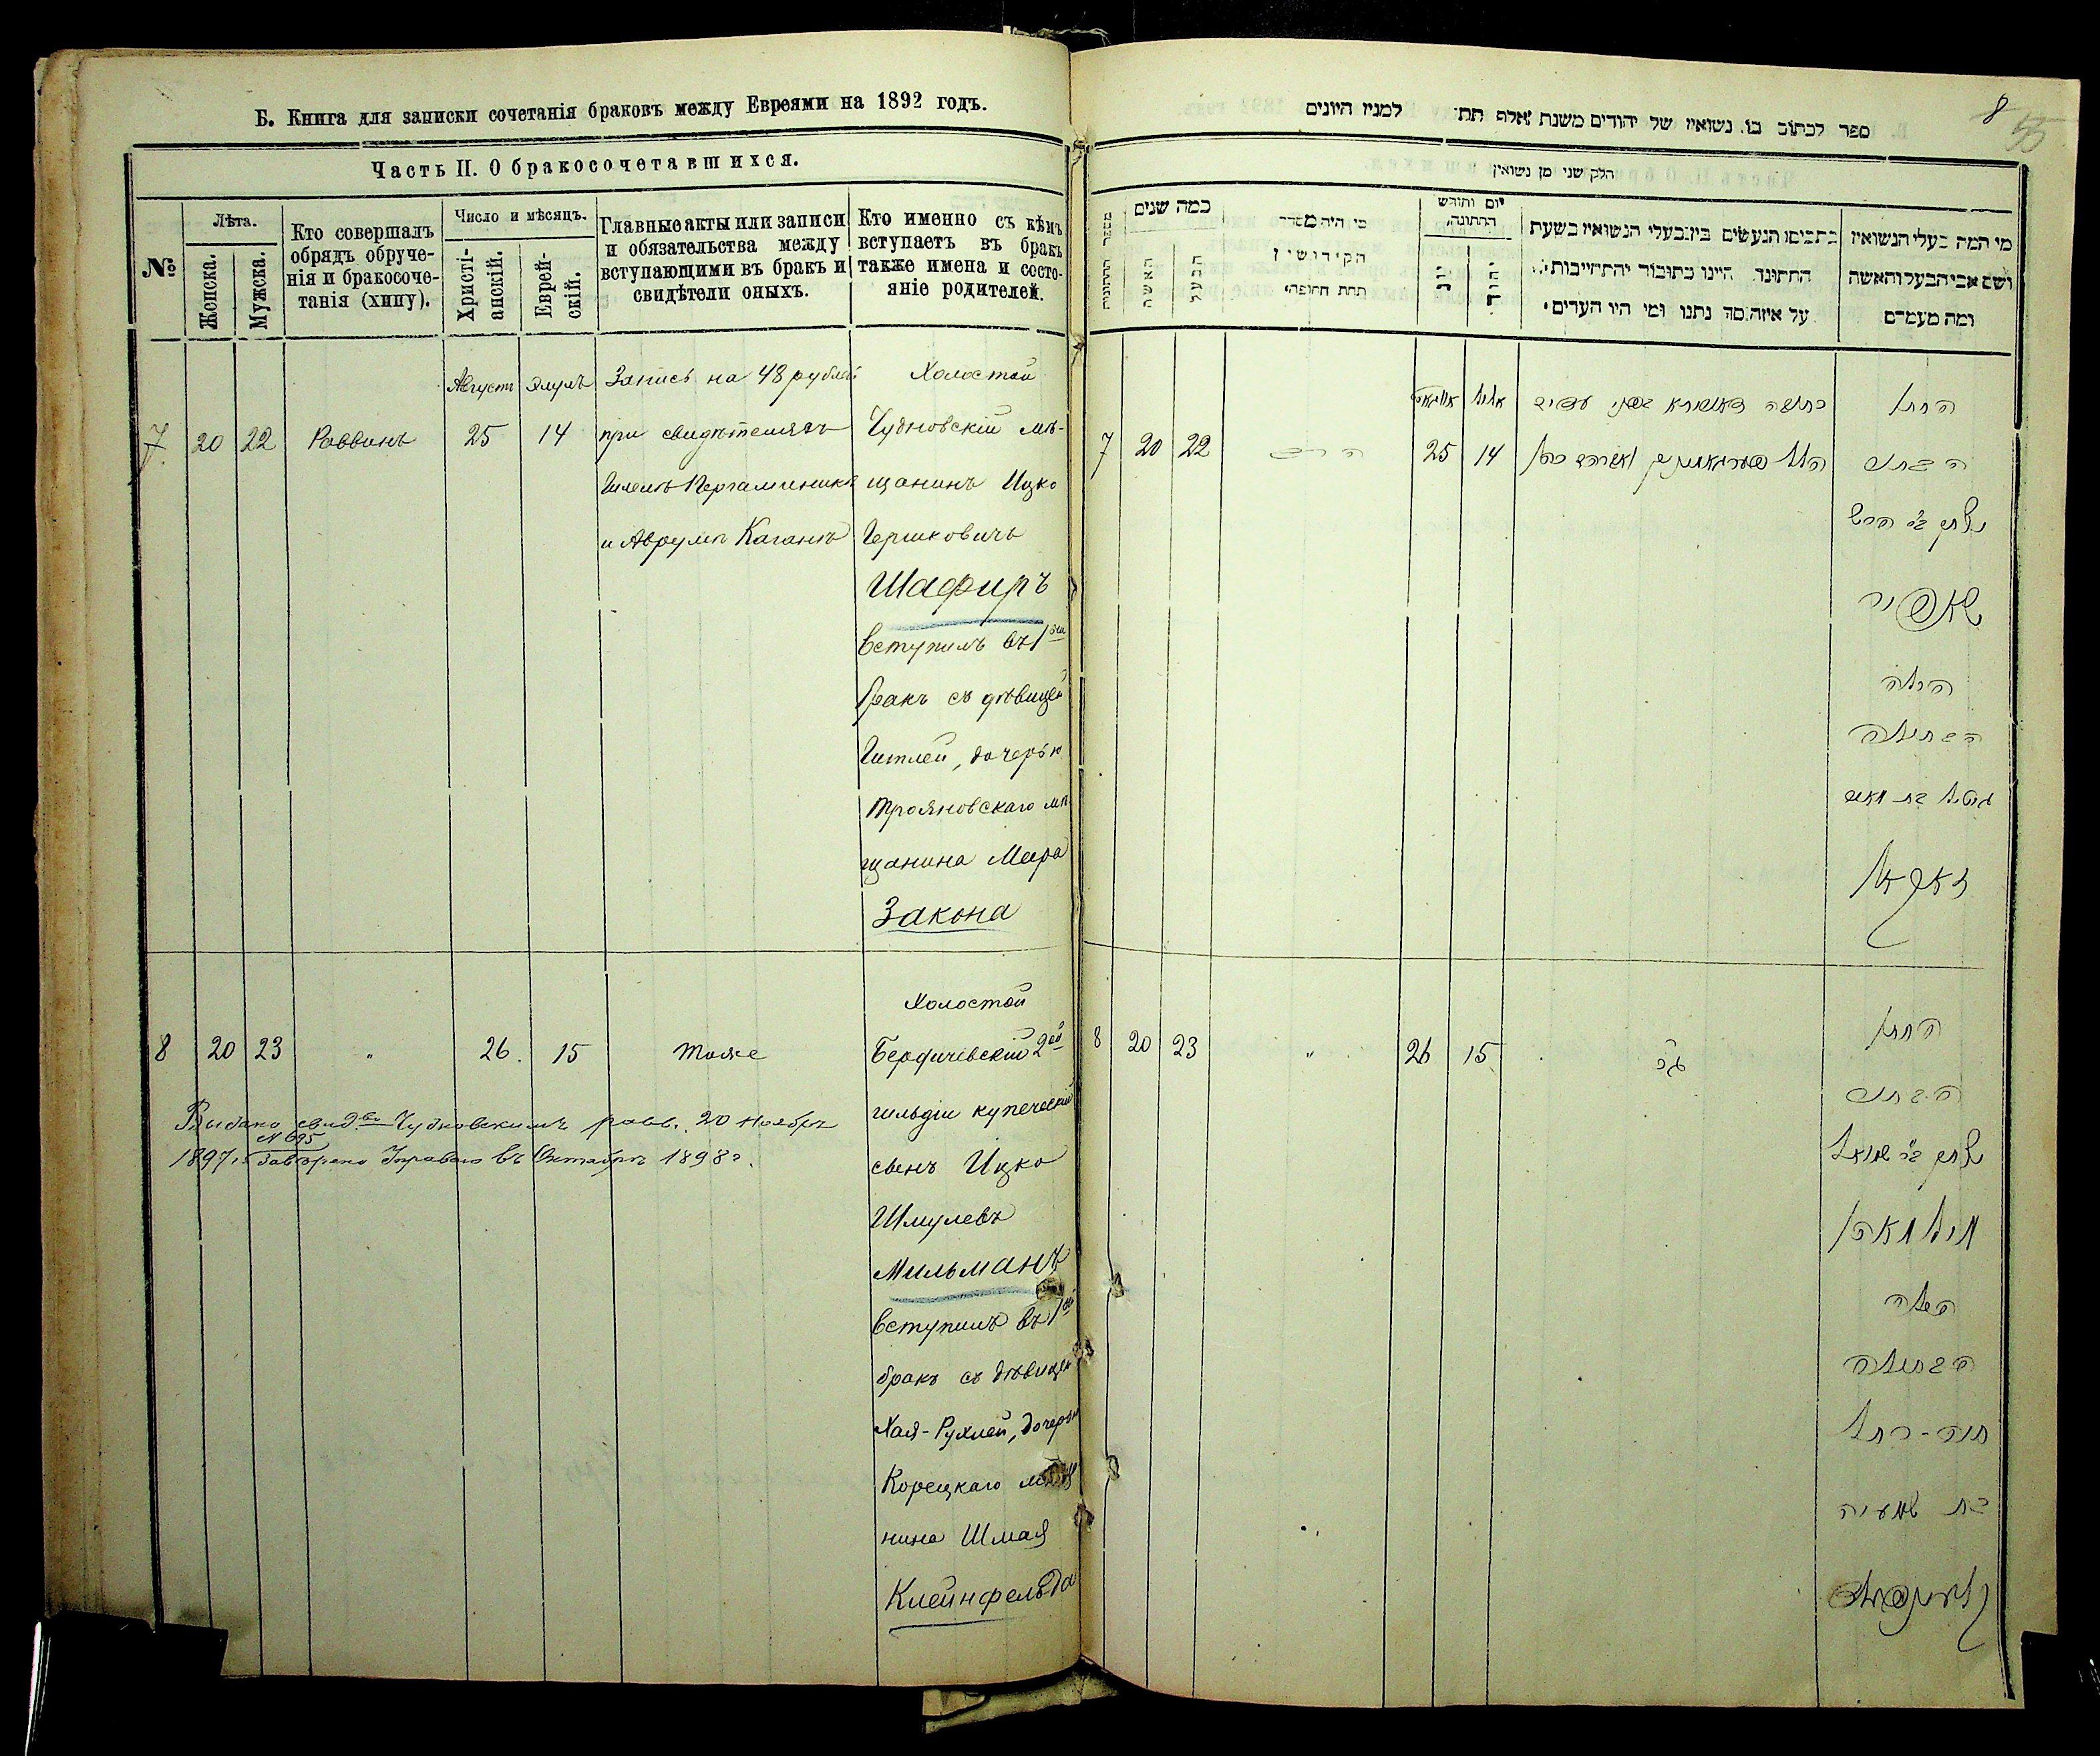 Б. Книга для записки сочетанія браковъ между Евреями на 1892 годъ.
Часть II. О бракосочетавшихся.
№
Лѣта.
Женска.
Мужска.
Кто совершалъ
обрядъ обруче-
нія и бракосоче-
танія (хипу).
Число и мѣсяцъ.
Христі-
анскій.
Еврей-
скій.
Главные акты или записи
и обязательства между
вступающими въ бракъ и
свидѣтели оныхъ.
Кто именно съ кѣмъ
вступаетъ въ бракъ
также имена и состо-
яніе родителей.
7 20 22 Раввинъ
Августъ 25
Элулъ 14
Запись на 48 рублей
при свидѣтеляхъ
Гилель Пергаменикъ
и Аврумъ Каганъ
Холостой
Чудновскій мѣ-
щанинъ Ицко
Гершковичъ
Шафиръ
вступилъ въ 1ый
бракъ съ дѣвицей
Гитлей, дочерью
Трояновскаго мѣ
щанина Меера
Закона
8 20 23 " 26. 15 Тоже
Холостой
Бердичевскій 2ой
гильдіи купеческій
сынъ Ицко
Шмулевъ
Мильманъ
вступилъ въ 1ый
бракъ съ дѣвицей
Хая-Рухлей, дочерью
Корецкаго
нина Шмая
Клейнфельда
Выдано свид.во Чудновскимъ равв. 20 Ноября
1897 г. № 695 Завѣрено Управою въ Октябрѣ 1898 г.
8
55
ספר לכתוב בו נשואין של יהודים משנת אלף תת למנין היונים
חלק שני מן נשואין
כמה שנים
האשה
הבעל
מי היה מסדר
הקידושין
תחת החופה
יום וחודש
החתונה
יוני
יהודי
כתבים הנעשים בין בעלי הנשואין בשעת
החתונה היינו כתובות והתחייבות
על איזה סך נתנו ומי היו העדים
מי המה בעלי הנשואין
ושם אבי הבעל והאשה
ומה מעמדם
7 20 22 הרב
אויגוסט 25
אלול 14
החתן
הבחור
יצחק ב״ר הירש
שאפיר
הכלה
הבתולה
גיטל בת מאיר
זאקאן
8 20 23 " 26 15
כנ״ל
החתן
הבחור
יצחק ב״ר שמואל
מילמאן
הכלה
הבתולה
חיה-רחל
בת שמעיה
קליינפעלד